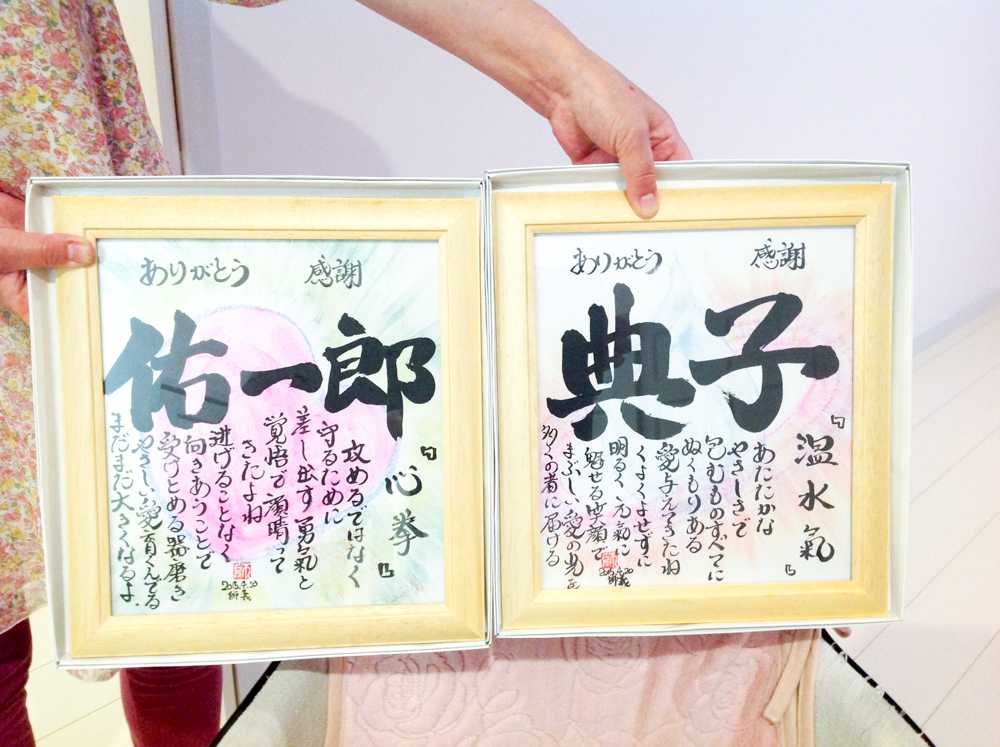 ありがとう　感謝
佑一郎
『心拳』
攻めるではなく
守るために
差し出す勇氣と
覚悟で顔晴って
きたよね
逃げることなく
向きあうことで
受けとめる器磨き
やさしい愛育くんでる
まだまだ大きくなるよ.
師
2015.4.20
師義
ありがとう　感謝
典子
『温水氣』
あたたかな
やさしさで
包むものすべてに
ぬくもりある
愛与えてきたね
くよくよせずに
明るく元氣に
魅せる笑顔で
まぶしい愛の光を
多くの者に届ける
師